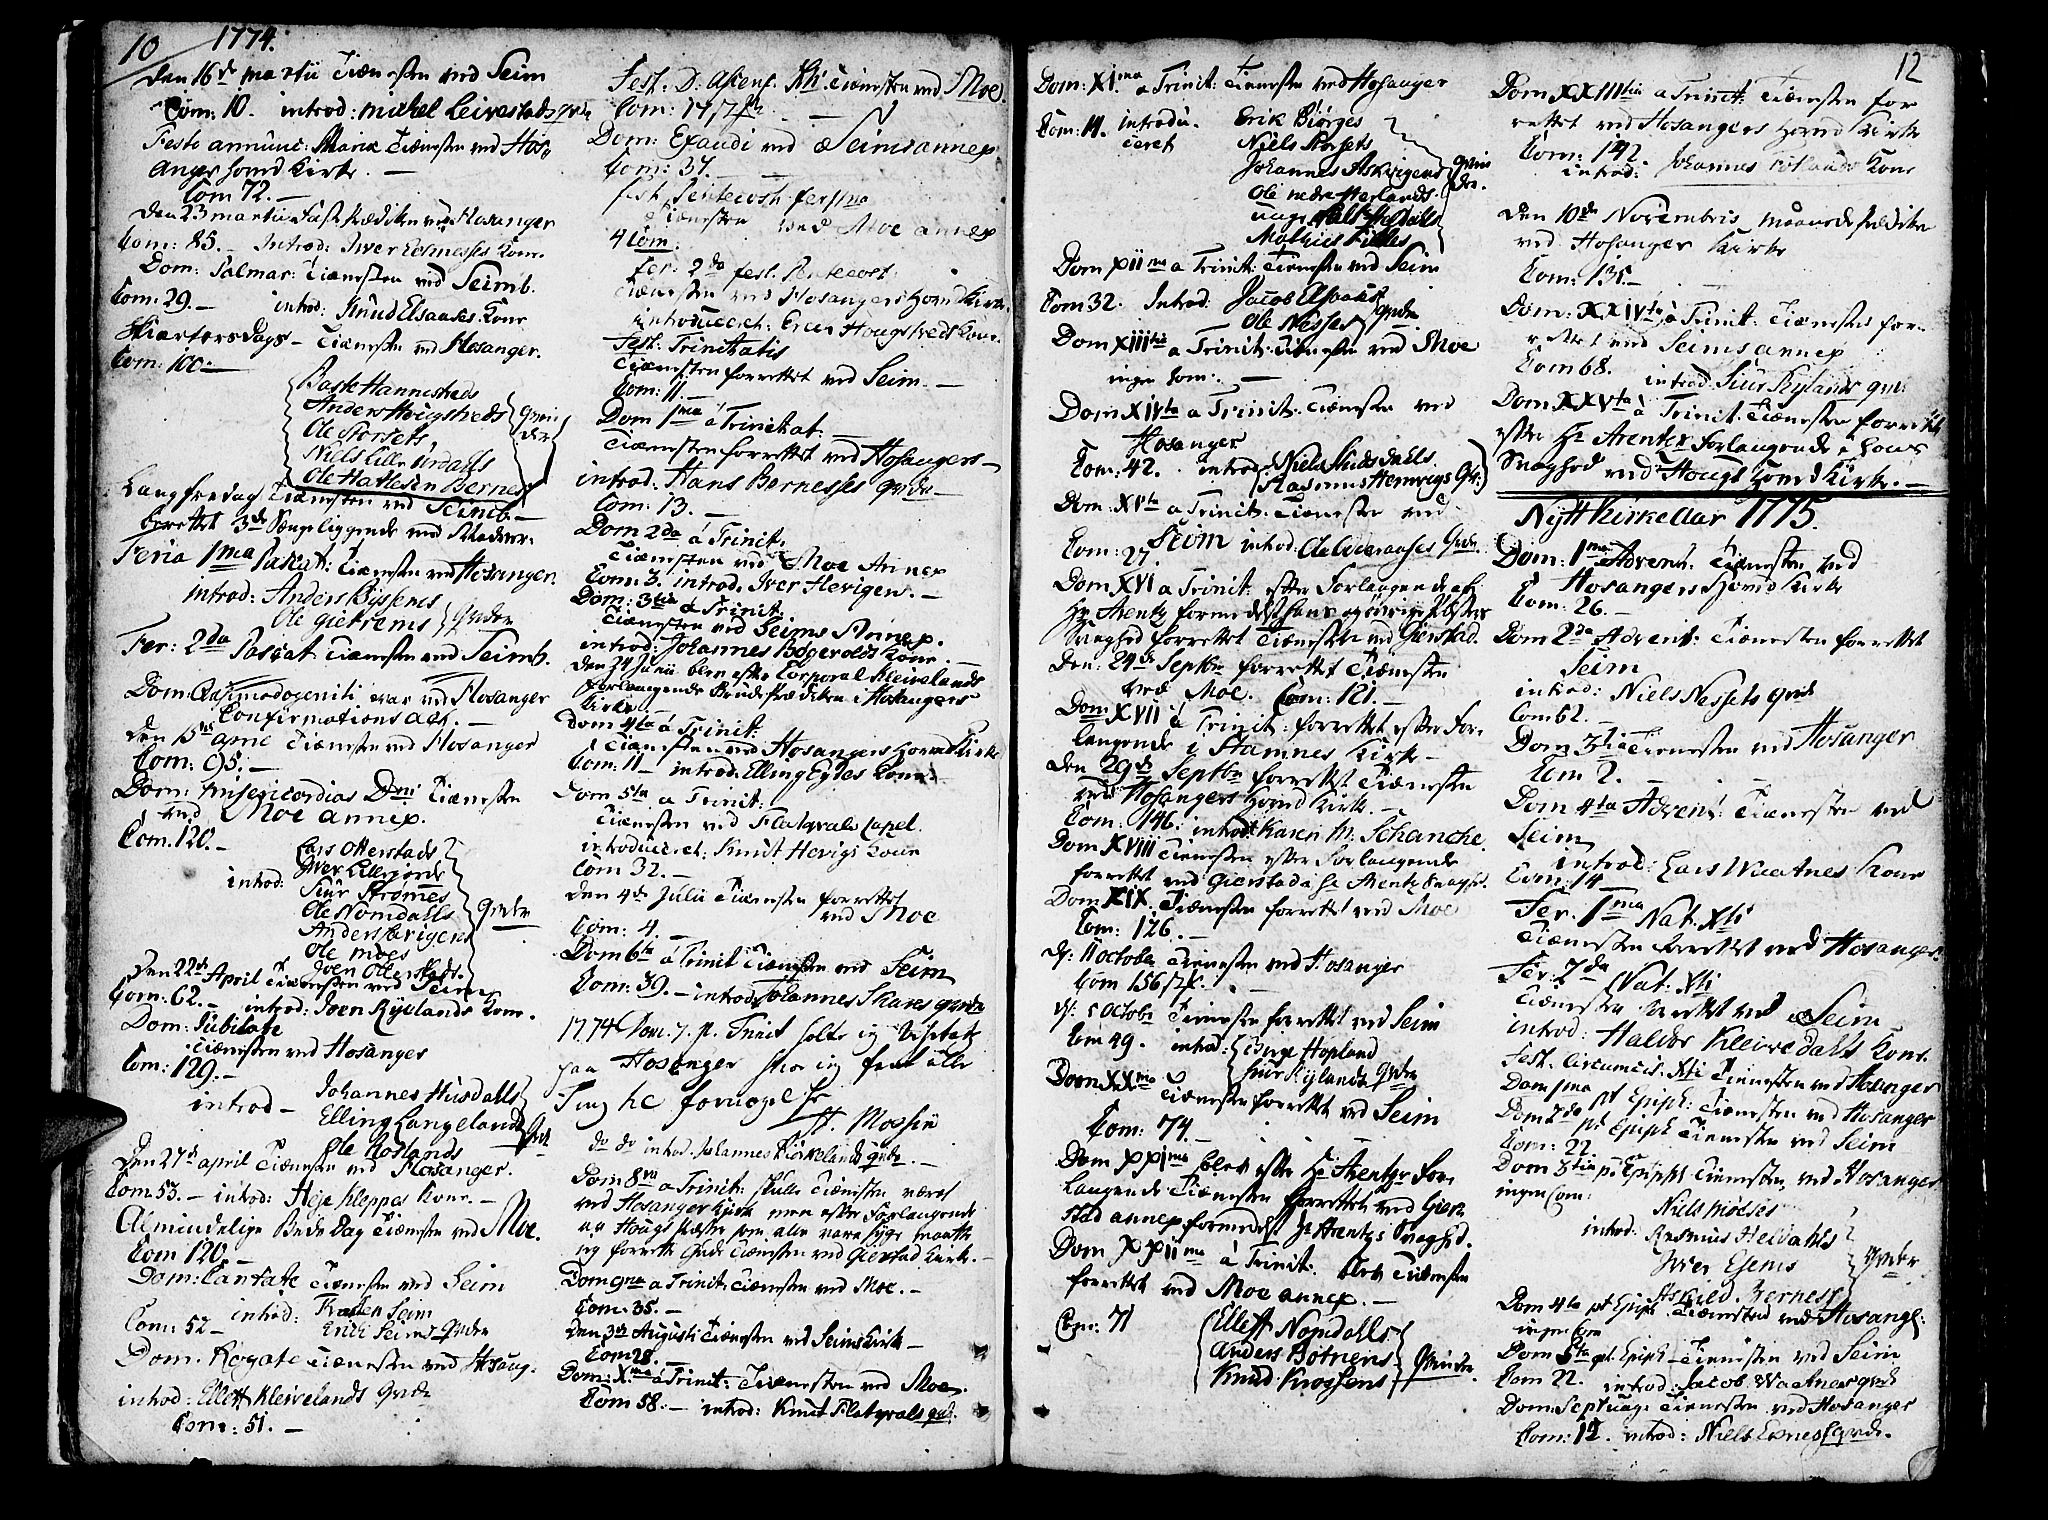 10
1774.
Den 16de martii Tienesten ved Seim
Com: 10. introd: michel Leirestads qvde
Festo annunc: Mariæ Tienesten ved Hos-
anger hoved Kirke. —
Com 72. —
Den 23 martii Fasteprædiken ved Hosanger
Com: 85. — Introd: Iver Eernesses Kone.
Dom: Palmar: Tienesten ved Seimb.
Com: 29. — introd: Knud Elsaases Kone
Skiertorsdags — Tienesten ved Hosanger.
Com: 100. —
Baste Hannisteds
Anders Hougstveds
Ole Storsets,
Niels Lille Urdalls
Ole Hatlesen Bernes
Qvin
der
Langfredag Tienesten ved Seimb. —
berettet 3de Sængeliggende ved
Feria 1ma Pascat: Tienesten ved Hosanger.
introd: Anders Byssems
Ole Gietrems qvder
Fer: 2da Pascat: Tienesten ved Seimb.
Dom: Qvasimodogeniti var ved Hosanger
Confirmations act. —
den 15de april Tienesten ved Hosanger
Com: 95. —
Dom: Misericordias Dmi Tienesten
ved Moe annex.
Com: 120. —
introd:
Lars Otterstads
Iver Lillegords
Siur Strømes
Ole Nomdalls
Anders
Ole Moes
Joen Otterstads.
Qvder
Den 22de April Tienesten ved Seim
Com: 62. — introd: Joen Rylands Kone.
Dom: Jubilate
Tienesten ved Hosanger
Com: 129. —
introd —
Johannes Husdalls
Elling Langelands
Ole Roslands
Qvde
Den 27de april Tienesten ved Hosanger.
Com: 53. — introd: Heje Kleppes Kone. —
Almindelige Bededag Tienesten ved Moe.
Com 120. —
Dom: Cantate Tienesten ved Seim
introd:
Com: 52 —
Erik Seims Qvder
Dom. Rogate Tienesten ved Hosang.
introd: Ellett Klevelands Qvde
Com: 51. —
Fest: D: Ascens. Xti Tienesten ved Moe.
Com: 17
Dom: Exaudi ved Seims annex
Com: 37. —
fest Pentecost: fer: 1ma
Tienesten ved Moe annex
4 Com.
fer: 2da fest. Pentecost:
Tienesten ved Hosangers hoved Kirke.
introduceret: Hougstveds Kone.
Fest: Trinitatis
Tienesten forrettet ved Seim. —
Com: 11. —
Dom 1ma á Trinitat: —
Tienesten forrettet ved Hosangers —
introd: Hans Bernesses qvde —
Com: 13. —
Dom 2da á Trinit:
Tienesten ved Moe Annex
Com: 3. introd. Iver Hevigen. —
Dom: 3tia á Trinit:
Tienesten ved Seims Annex.
introd: Johannes Kone.
Den 24 Junii blev efter Corporal Kleivelands
forlangende Brudeprædiken i Hosangers
Kirke.
Dom 4ta á Trinit:
Tienesten ved Hosangers hoved Kirke
Com: 11 — introd. Elling Kone.
Dom 5ta a Trinit:
Tienesten ved Flatqvals Capel.
introduceret: Knut Hevigs Kone
Com 32. —
den 4de Julii Tienesten forrettet
ved Moe
Com: 4. —
Dom 6ta á Trinit Tienesten ved Seim
Com: 39. — introd: Johannes Skars qvde
1774 Dom. 7. p. Trinit holte ieg Visitatz
paa Hosanger hvor ieg fant alle
Ting
do do introd. Johannes Kirkelands qvde. —
Dom 8va a Trinit: skulle Tienesten været
ved Hosanger Kirke men efter Forlangende
af Hougs Præster som alle vare syge maatte
ieg forrette Guds Tienesten ved Gierstad Kirke. —
Dom 9na a Trinit. Tienesten ved Moe. —
Com: 35. —
den 3de Augusti Tienesten ved Seims Kirke —
Com 28.
Dom: Xma a Trinit: Tienesten ved Moe.
Com 58. — introd: Knut Flatqvals qvde.
Dom: XIma a Trinit: Tienesten ved Hosanger
Com: 14. introdu-
ceret
Erik Biørges
Niels Storsets
Johannes Askvigens
Ole nedre Herlands.
Mathies
Qvin
der.
Dom XIIma a Trinit: Tienesten ved Seim
Com 32. Introd: Jacob Elsaas
Ole Nesses Qvder
Dom XIIItia a Trinit: Tienesten ved Moe
ingen Com: —
Dom XIVta a Trinit: Tienesten ved
Hosanger
Com: 42. introd: Niels Husdalls
Rasmus Hemvigs Qv:
Dom: XVta a Trinit: Tienesten ved
Seim introd: Qvde.
Com: 27.
Dom XVI a Trinit: efter Forlangende af
Hr Arentz formedelst hans og øvrige Præsters
Svaghed forrettet Tienesten ved Gierstad.
Den: 24de Septbr forrettet Tienesten
ved Moe. Com: 121. —
Dom XVII á Trinit: forrettet efter For-
langende i Stamnes Kirke —
Den 29de Septbr forrettet Tienesten
ved Hosangers hoved Kirke. —
Com: 146: introd: Karen M: Schanche.
Dom XVIII Tienesten efter Forlangende
forrettet ved Gierstad Hr Arentz Svaghed.
Dom XIX. Tienesten forrettet ved Moe
Com: 126. —
d: 11 October Tienesten ved Hosanger
Com 156
d: 5 October Tienesten forrettet ved Seim
Com 49. introd: Børge Hopland
Siur Rylands Qvder
Dom XXma
Tienesten forrettet ved Seim
Com: 74. —
Dom XXIma blev efter Hr Arentz For-
langende Tienesten forrettet ved Gier-
stad annex formedelst Hr Arentz's Svaghed.
Dom XXIIma á Trinit: blev Tienesten
forrettet ved Moe annex. —
Com: 71
Ellett Nomdalls
Anders Botnens
Knud Krossens
Qvinder.
12
Dom XXIIItia a Trinit: Tienesten for
rettet ved Hosangers hoved Kirke
Com: 142.
introd: Johannes Kone
den 10de Novembris Maaneds prædiken
ved Hosanger Kirke
Com: 135. —
Dom: XXIVta á Trinit: Tienesten for-
rettet ved Seims annex
Com 68. introd: Siur Rylands qvde:
Dom: XXVta á Trinit: Tienesten forrettet
efter Hr Arentz Forlangende i hans
Svaghed ved Hougs hoved Kirke. —
Nytt Kirke Aar 1775.
Dom: 1ma Advent: Tienesten ved
Hosangers hoved Kirke
Com: 26. —
Dom 2da Advent: Tienesten forrettet
Seim
introd: Niels Nessets qvde
Com 62. —
Dom 3tia Tienesten ved Hosanger
Com 2. —
Dom 4ta Advent: Tienesten ved
Seim
introd: Lars Waatnes Kone
Com: 14
Fer. 1ma Nat: Xti
Tienesten forrettet ved Hosanger.
Fer: 2da Nat: Xti
Tienesten forrettet ved Seim
introd: Haldor Kleivedahls Kone.
Fest. Circumcis: Xti Tienesten ved Hosanger
Dom 1ma pt Epiph: Tienesten ved Hosanger
Dom 2da pt Epiph Tienesten ved Seim
Com: 22.
Dom 3tia pt Epiph: Tienesten ved Hosanger
ingen Com:
introd:
Niels Moeses
Rasmus Helvahls
Iver Esems
Askild Berness
Qvinder
Dom 4ta pt Epiph: Tienesten ved Hosang:
ingen Com
Dom 5ta pt. Epiph — Tienesten ved Seim
Com 22. introd: Jacob Waatnes qvde
Dom: Septuag: Tienesten ved Hosanger
Com: 12. introd: Niels Eknes qvde.